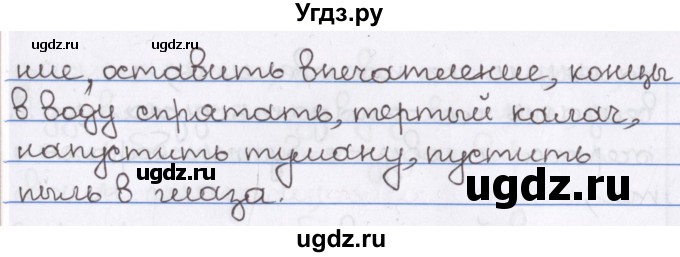 Угдз.ру
ugdz.ru ugdz.ru ugdz.ru
ние, оставить впечатление, концы
в воду спрятать, тертый калач,
напустить туману, пустить
пыль в глаза.
ugdz.ru ugdz.ru ugdz.ru
ugdz.ru